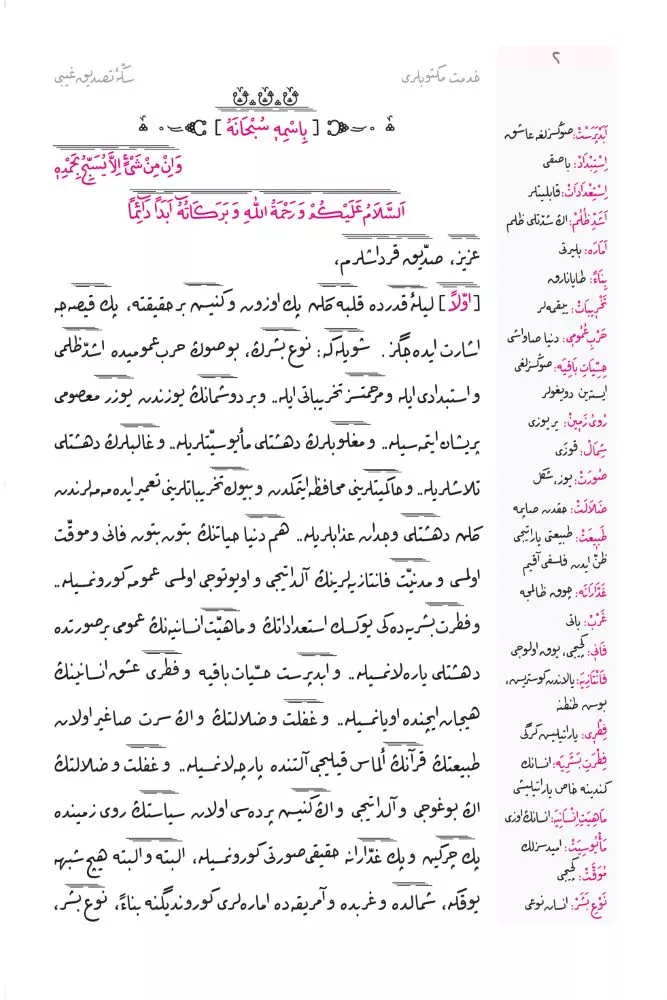 ٢
خدمت مكتوبلرى
سكّهٔ تصديق غيبى
[ بِاسْمِهٖ سُبْحَانَهُ ]
وَاِنْ مِنْ شَيْءٍ اِلَّا يُسَبِّحُ بِحَمْدِهٖ
اَلسَّلَامُ عَلَيْكُمْ وَرَحْمَةُ اللّٰهِ وَبَرَكَاتُهُ اَبَدًا دَائِمًا
عزيز، صدّيق قرداشلرم،
[ اوّلاً ] ليلهٔ قدرده قلبه كلن پك اوزون و كنيس بر حقيقته، پك قيصه جه
اشارت ايده جگز. شويله كه: نوع بشرك، بو صوك حرب عموميده اشدّ ظلمى
و استبدادى ايله و مرحمتسز تخريباتى ايله.. و بر دوشمانك يوزندن يوزر معصومى
پريشان ايتمه سيله.. و مغلوبلرك دهشتلى مأيوسيّتلريله.. و غالبلرك دهشتلى
تلاشلريله.. و حاكميتلرينى محافظه ايتمكدن و بيوك تخريباتلرينى تعمير ايده مه مه لرندن
كلن دهشتلى وجدان عذابلريله.. هم دنيا حياتنك بتون بتون فانى و موقّت
اولمسى و مدنيّت فانتازيه لرينك آلداتيجى و اويوتوجى اولمسى عمومه كورونمسيله..
و فطرت بشريه ده كى يوكسك استعداداتك و ماهيّت انسانيه نك عمومى بر صورتده
دهشتلى ياره لانمسيله.. و ابدپرست حسّيات باقيه و فطرى عشق انسانينك
هيجان ايچنده اويانمسيله.. و غفلت و ضلالتك و اك سرت صاغير اولان
طبيعتك قرآنك ألماس قيليجى آلتنده پارچه لانمسيله.. و غفلت و ضلالتك
اك بوغوجى و آلداتيجى و اك كنيس پرده سى اولان سياستك روى زمينده
پك چركين و پك غدّارانه حقيقى صورتى كورونمسيله، البته و البته هيچ شبهه
يوقكه، شمالده و غربده و آمريقه ده اماره لرى كورونديگنه بناءً، نوع بشر،
اَبَدْپَرَسْتْ: صوكسزلغه عاشق
اِسْتِبْدَادْ: باصقى
اِسْتِعْدَادَاتْ: قابليتلر
اَشَدِّ ظُلْمْ: اك شدّتلى ظلم
اَمَارَه: بليرتى
بِنَاءً: طايانارق
تَخْرِيبَاتْ: ييقمه لر
حَرْبِ عُمُومِى: دنيا صاواشى
حِسِّيَاتِ بَاقِيَه: صوكسزلغى
ايستين دويغولر
رُوىِ زَمِينْ: ير يوزى
شِمَالْ: قوزى
صُورَتْ: يوز، شكل
ضَلَالَتْ: حقدن صاپمه
طَبِيعَتْ: طبيعتى ياراتيجى
ظنّ ايدن فلسفى آقيم
غَدَّارَانَه: چوق ظالمجه
غَرْبْ: باتى
فَانِى: كچيجى، يوق اولوجى
فَانْتَازِيَه: يالاندن كوستريس،
بوس طنطنه
فِطْرِى: ياراتيليس كركى
فِطْرَتِ بَشَرِيَه: انسانك
كندينه خاص ياراتيليشى
مَاهِيَتِ اِنْسَانِيَه: انسانك اوزى
مَأْيُوسِيَتْ: اميدسزلك
مُوَقَّتْ: كچيجى
نَوْعِ بَشَرْ: انسان نوعى